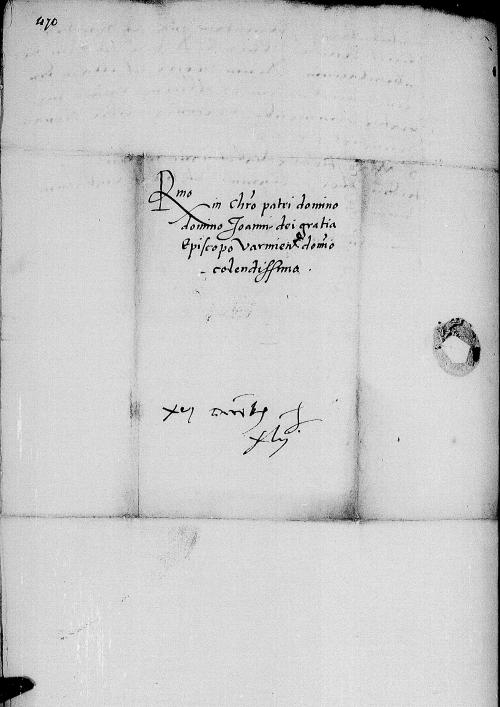 470
Rmo
in Chro patri domino
domino Joanni dei gratia
Episcopo Varmien domio
colendissimo.